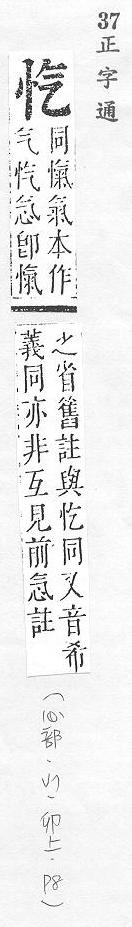 37 正字通
忾
同愾氣本作
气忾忥卽愾
之省舊註與忔同又音希
義同亦非互見前忥註
(心部·卯上·P8)